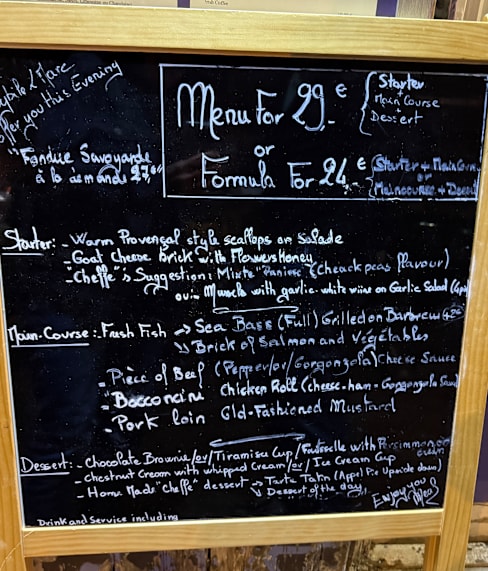 & Marc
offer you this Evening
"Fondue Savoyarde
à la demande 27,€"
Menu For 29.-€
Starter
+
Main Course
+
Dessert
or
Formula For 24,€
Starter + Main Course
or
Maincourse + Dessert
Starter: - Warm Provençal style scallops on Salade
- Goat Cheese brick with Flowers Honey
- "Cheffe"'s Suggestion: Mixte "Panisse" (Cheack peas flavour)
ou: Muscls with garlic-white wine on Garlic Salad
Main-Course: Fresh Fish → Sea Bass (Full) Grilled on Barbecue
↘ Brick of Salmon and Végétables
- Pièce of Beef (Pepper/or/Gorgonzola) Cheese Sauce
- "Bocconcini Chicken Roll (cheese-ham-Gorgonzola Sauce)
- Pork loin Old-Fashioned Mustard
Dessert: - Chocolate Brownie/or/Tiramisu Cup/Faisselle with Persimmon cream
- chestnut Cream with whipped Cream/or/Ice Cream Cup
- Home Made "Cheffe" dessert → Tarte Tatin (Appel Pie Upside down)
↘ Dessert of the day
Enjoy you
Drink and Service including